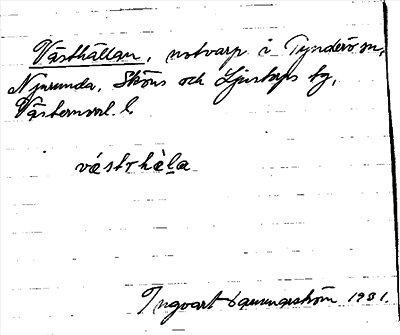 Västhällan, notvarp i Tynderö sn,
Njurunda, Sköns och Ljustorps tg,
Västernorrl. l.
västrhäla
Ingvart 1931.